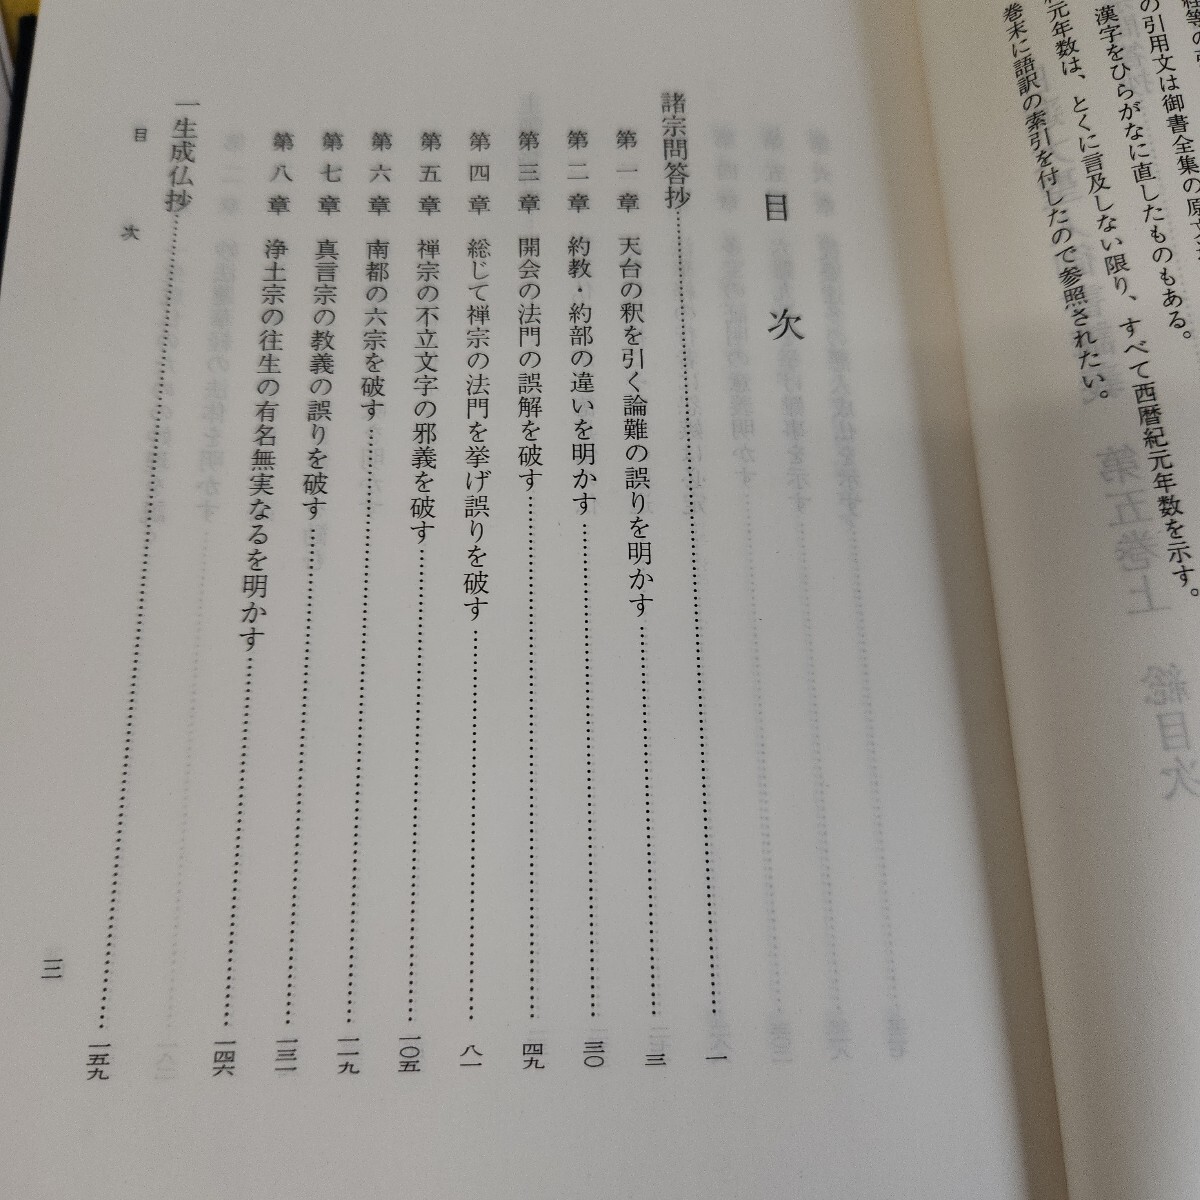 の引用文は御書全集の原文
漢字をひらがなに直したものもある。
元年数は、とくに言及しない限り、すべて西暦紀元年数を示す。
巻末に語訳の索引を付したので参照されたい。
目次
諸宗問答抄……一
第一章 天台の釈を引く論難の誤りを明かす……三
第二章 約教・約部の違いを明かす……三〇
第三章 開会の法門の誤解を破す……四九
第四章 総じて禅宗の法門を挙げ誤りを破す……八一
第五章 禅宗の不立文字の邪義を破す……一〇五
第六章 南都の六宗を破す……一一九
第七章 真言宗の教義の誤りを破す……一三一
第八章 浄土宗の往生の有名無実なるを明かす……一四六
一生成仏抄……一五九
目次
三